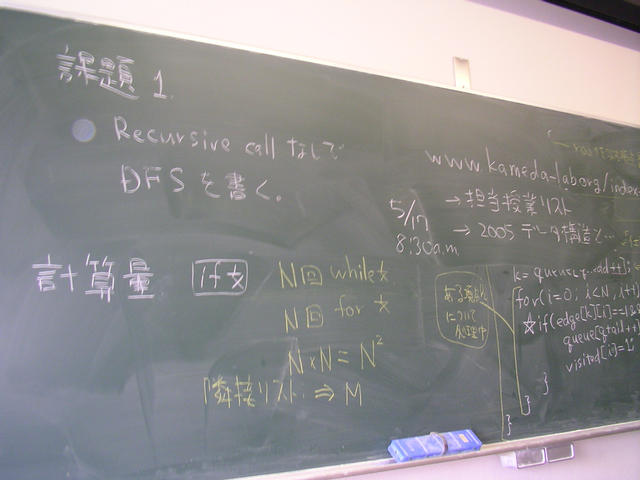 課題 1.
Recursive call なしで
DFSを書く。
計算量 if文
N回 while文
N回 for 文
N×N = N²
隣接リスト ⇒ M
www.kameda-lab.org/index
→担当授業リスト
→2005 データ構造と...
5/17
8:30a.m.
ある頂点に
について
処理中
k = queue[
for(i=0; i<N; i++)
☆if(edge[k][i]==1&&
queue[qtail++
visited[i]=1;
}
}
}